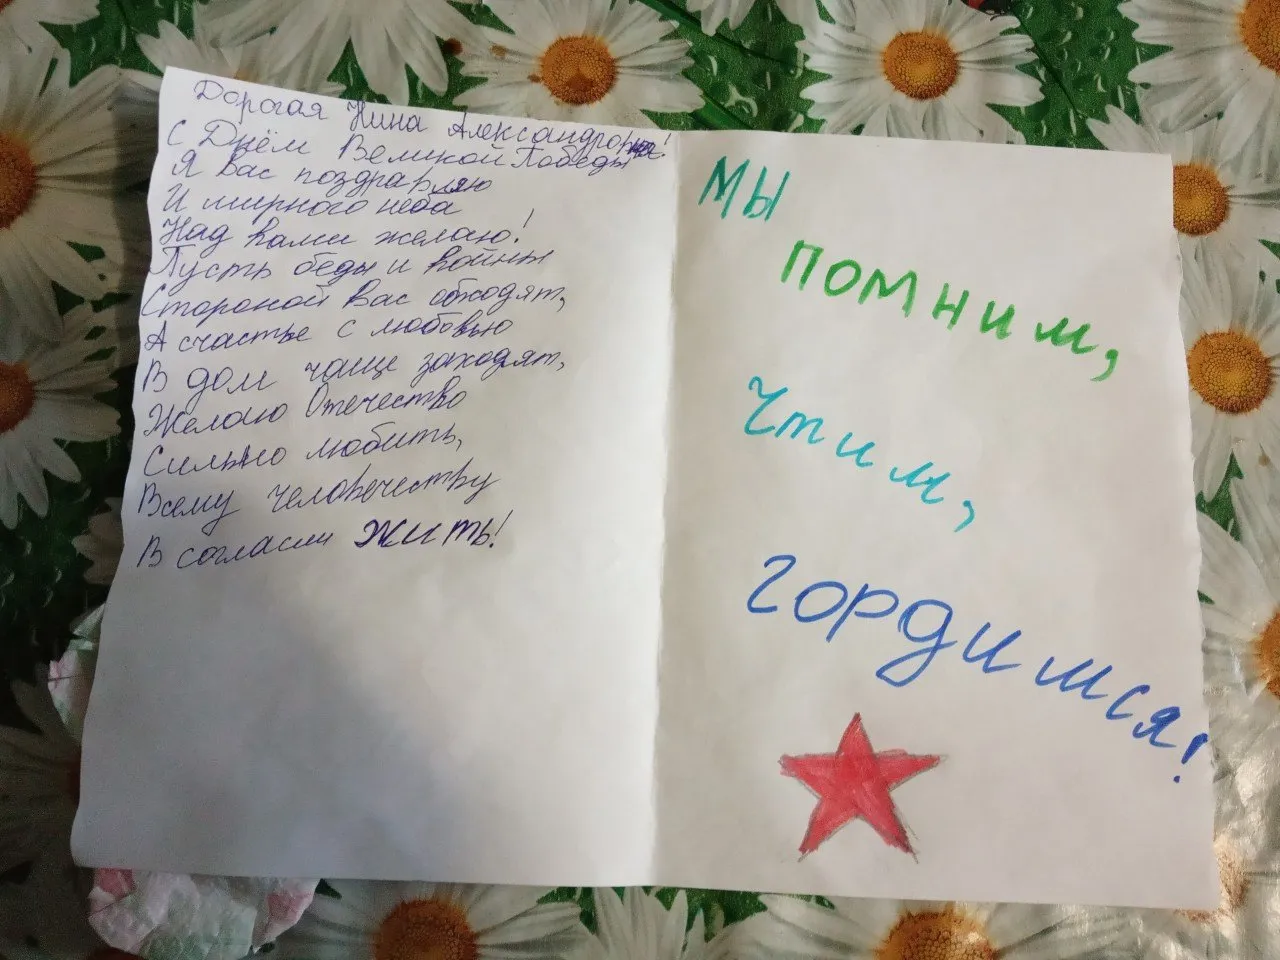 Дорогая Нина Александровна!
С Днём Великой Победы
Я Вас поздравляю
И мирного неба
Над вами желаю!
Пусть беды и войны
Стороной Вас обходят,
А счастье с любовью
В дом чаще заходят,
Желаю Отечество
Сильно любить,
Всему человечеству
В согласии жить!
МЫ
ПОМНИМ,
Чтим,
гордимся!